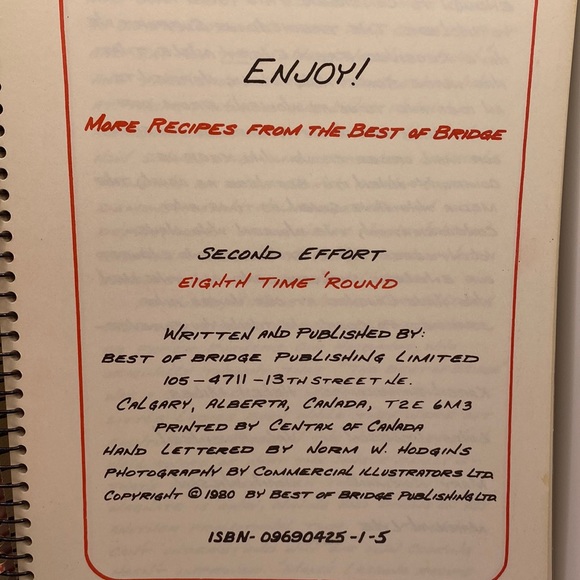 ENJOY!
MORE RECIPES FROM THE BEST OF BRIDGE
SECOND EFFORT
EIGHTH TIME 'ROUND
WRITTEN AND PUBLISHED BY:
BEST OF BRIDGE PUBLISHING LIMITED
105-4711-13TH STREET N.E.
CALGARY, ALBERTA, CANADA, T2E 6M3
PRINTED BY CENTAX OF CANADA
HAND LETTERED BY NORM W. HODGINS
PHOTOGRAPHY BY COMMERCIAL ILLUSTRATORS LTD.
COPYRIGHT © 1980 BY BEST OF BRIDGE PUBLISHING LTD.
ISBN-09690425-1-5